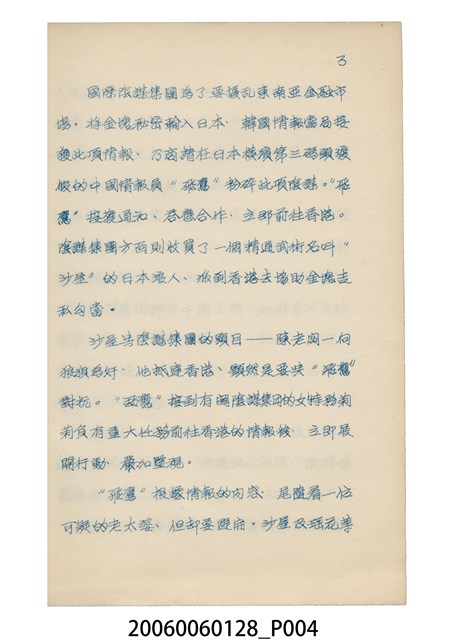 3
國際陰謀集團為了要擾乱東南亞金融市
場，將金塊秘密輸入日本，韓國情報當局接
獲此項情報，乃商請在日本橫濱第三碼頭渡
假的中國情報員“飛鷹”粉碎此項陰謀。“飛
鷹”接獲通知、答應合作，立即前往香港。
陰謀集團方面則收買了一個精通武術名叫“
沙星”的日本浪人、派到香港去協助金塊走
私勾當。
沙星與陰謀集團的頭目——陳老闆一向
狼狽為奸，他抵達香港、顯然是要與“飛鷹”
對抗。“飛鷹”接到有關陰謀集團的女特務莉
莉負有重大任務前往香港的情報後，立即展
開行動，嚴加監視。
“飛鷹”根據情報的內容，尾隨着一位
可疑的老太婆、但却要避開，沙星及瑶花等
20060060128_P004